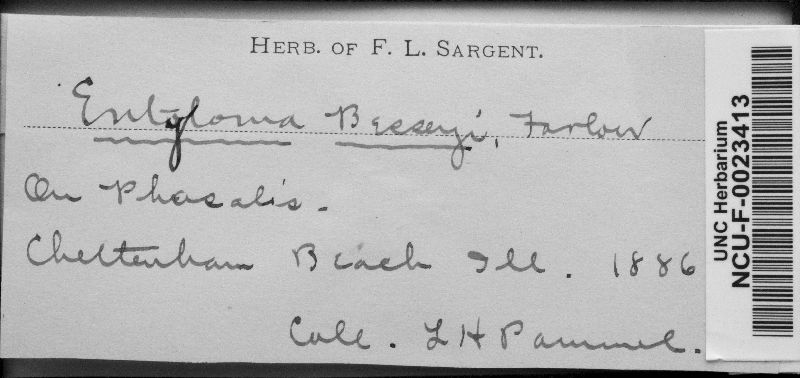 HERB. OF F. L. SARGENT.
Entyloma Besseyi, Farlow
On Phasalis.
Cheltenham Beach Ill. 1886
Coll. L H Pammel.
UNC Herbarium
NCU-F-0023413